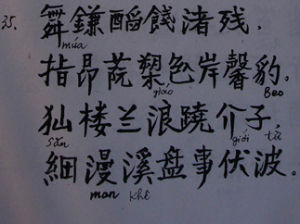 35. 舞鎌餞渚残.
múa
指昂槊岸馨豹。
giáo Beo
狐楼兰浪蹺介子.
săn giới tử
細漫溪盘事伏波。
man khê